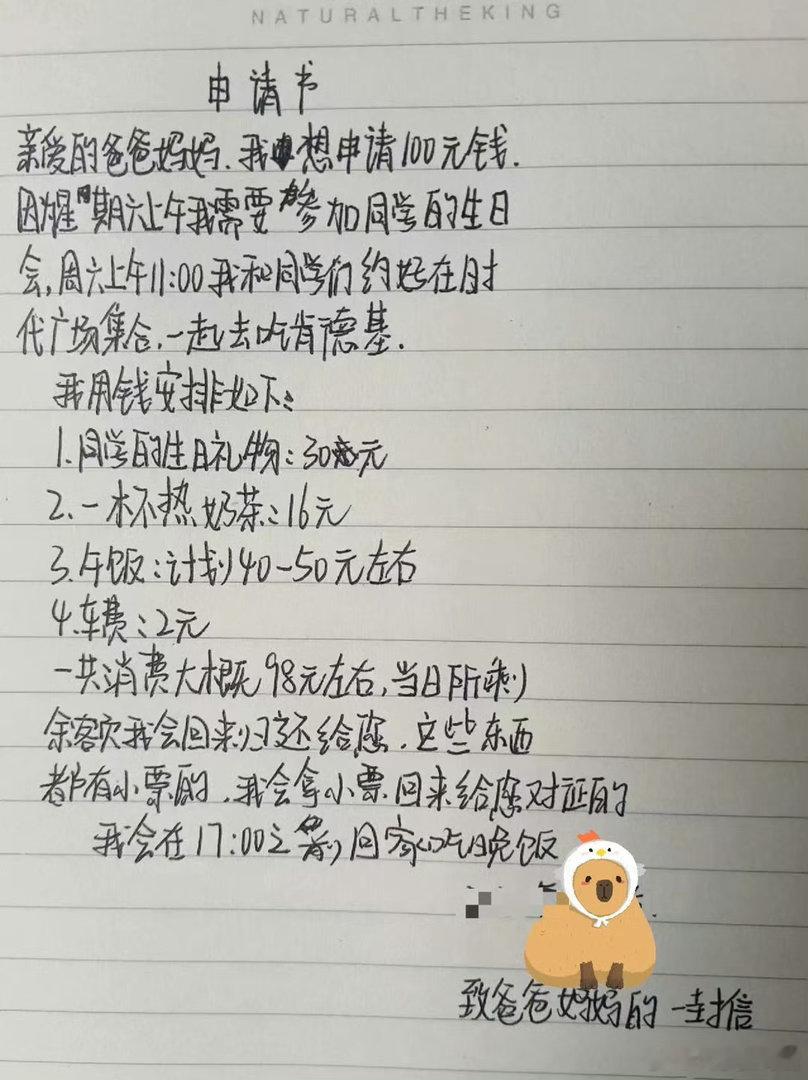 NATURALTHEKING
申请书
亲爱的爸爸妈妈.我想申请100元钱.
因为星期六上午我需要参加同学的生日
会,周六上午11:00我和同学们约好在时
代广场集合.一起去吃肯德基.
我用钱安排如下:
1.同学的生日礼物:30元
2.一杯热奶茶:16元
3.午饭:计划40-50元左右
4.车费:2元
一共消费大概98元左右,当日所剩
余客欠我会回来归还给您.这些东西
都有小票的.我会拿小票回来给您对证的
我会在17:00之前回家吃晚饭
致爸爸妈妈的一封信